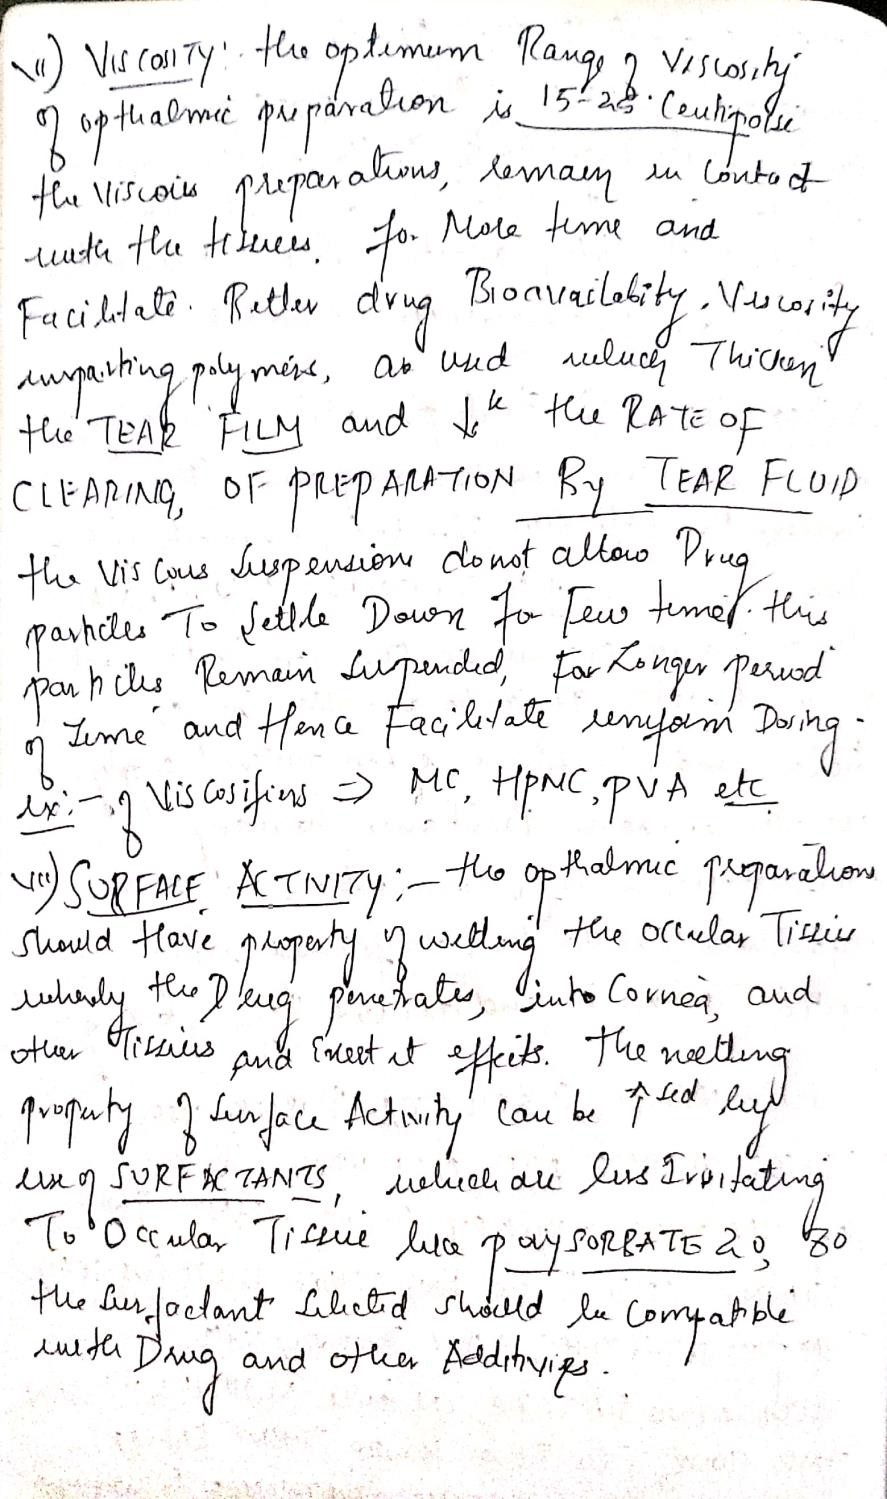 vii) VISCOSITY: the optimum Range of Viscosity
of opthalmic preparation is 15-25 Centipoise
the Viscous preparations, remain in Contact
with the tissues. for More time and
Facilitate. Better drug Bioavailability. Viscosity
imparting polymers, as used which Thicken
the TEAR FILM and ↓k the RATE OF
CLEARING, OF PREPARATION By TEAR FLUID
the Viscous Suspensions do not allow Drug
particles To Settle Down for Few time. this
particles Remain Suspended, For Longer period
of Time and Hence Facilitate uniform Dosing.
ex:- of Viscosifiers ⇒ MC, HPMC, PVA etc
viii) SURFACE ACTIVITY:- the opthalmic preparations
should Have property of wetting the occular Tissues
whereby the Drug penetrates, into Cornea, and
other Tissues and Exert it effects. The wetting
property of Surface Activity can be ↑sed by
use of SURFACTANTS, which are less Irritating
To Occular Tissue like paySORBATE 20, 80
the Surfactant Selected should be Compatible
with Drug and other Additives.